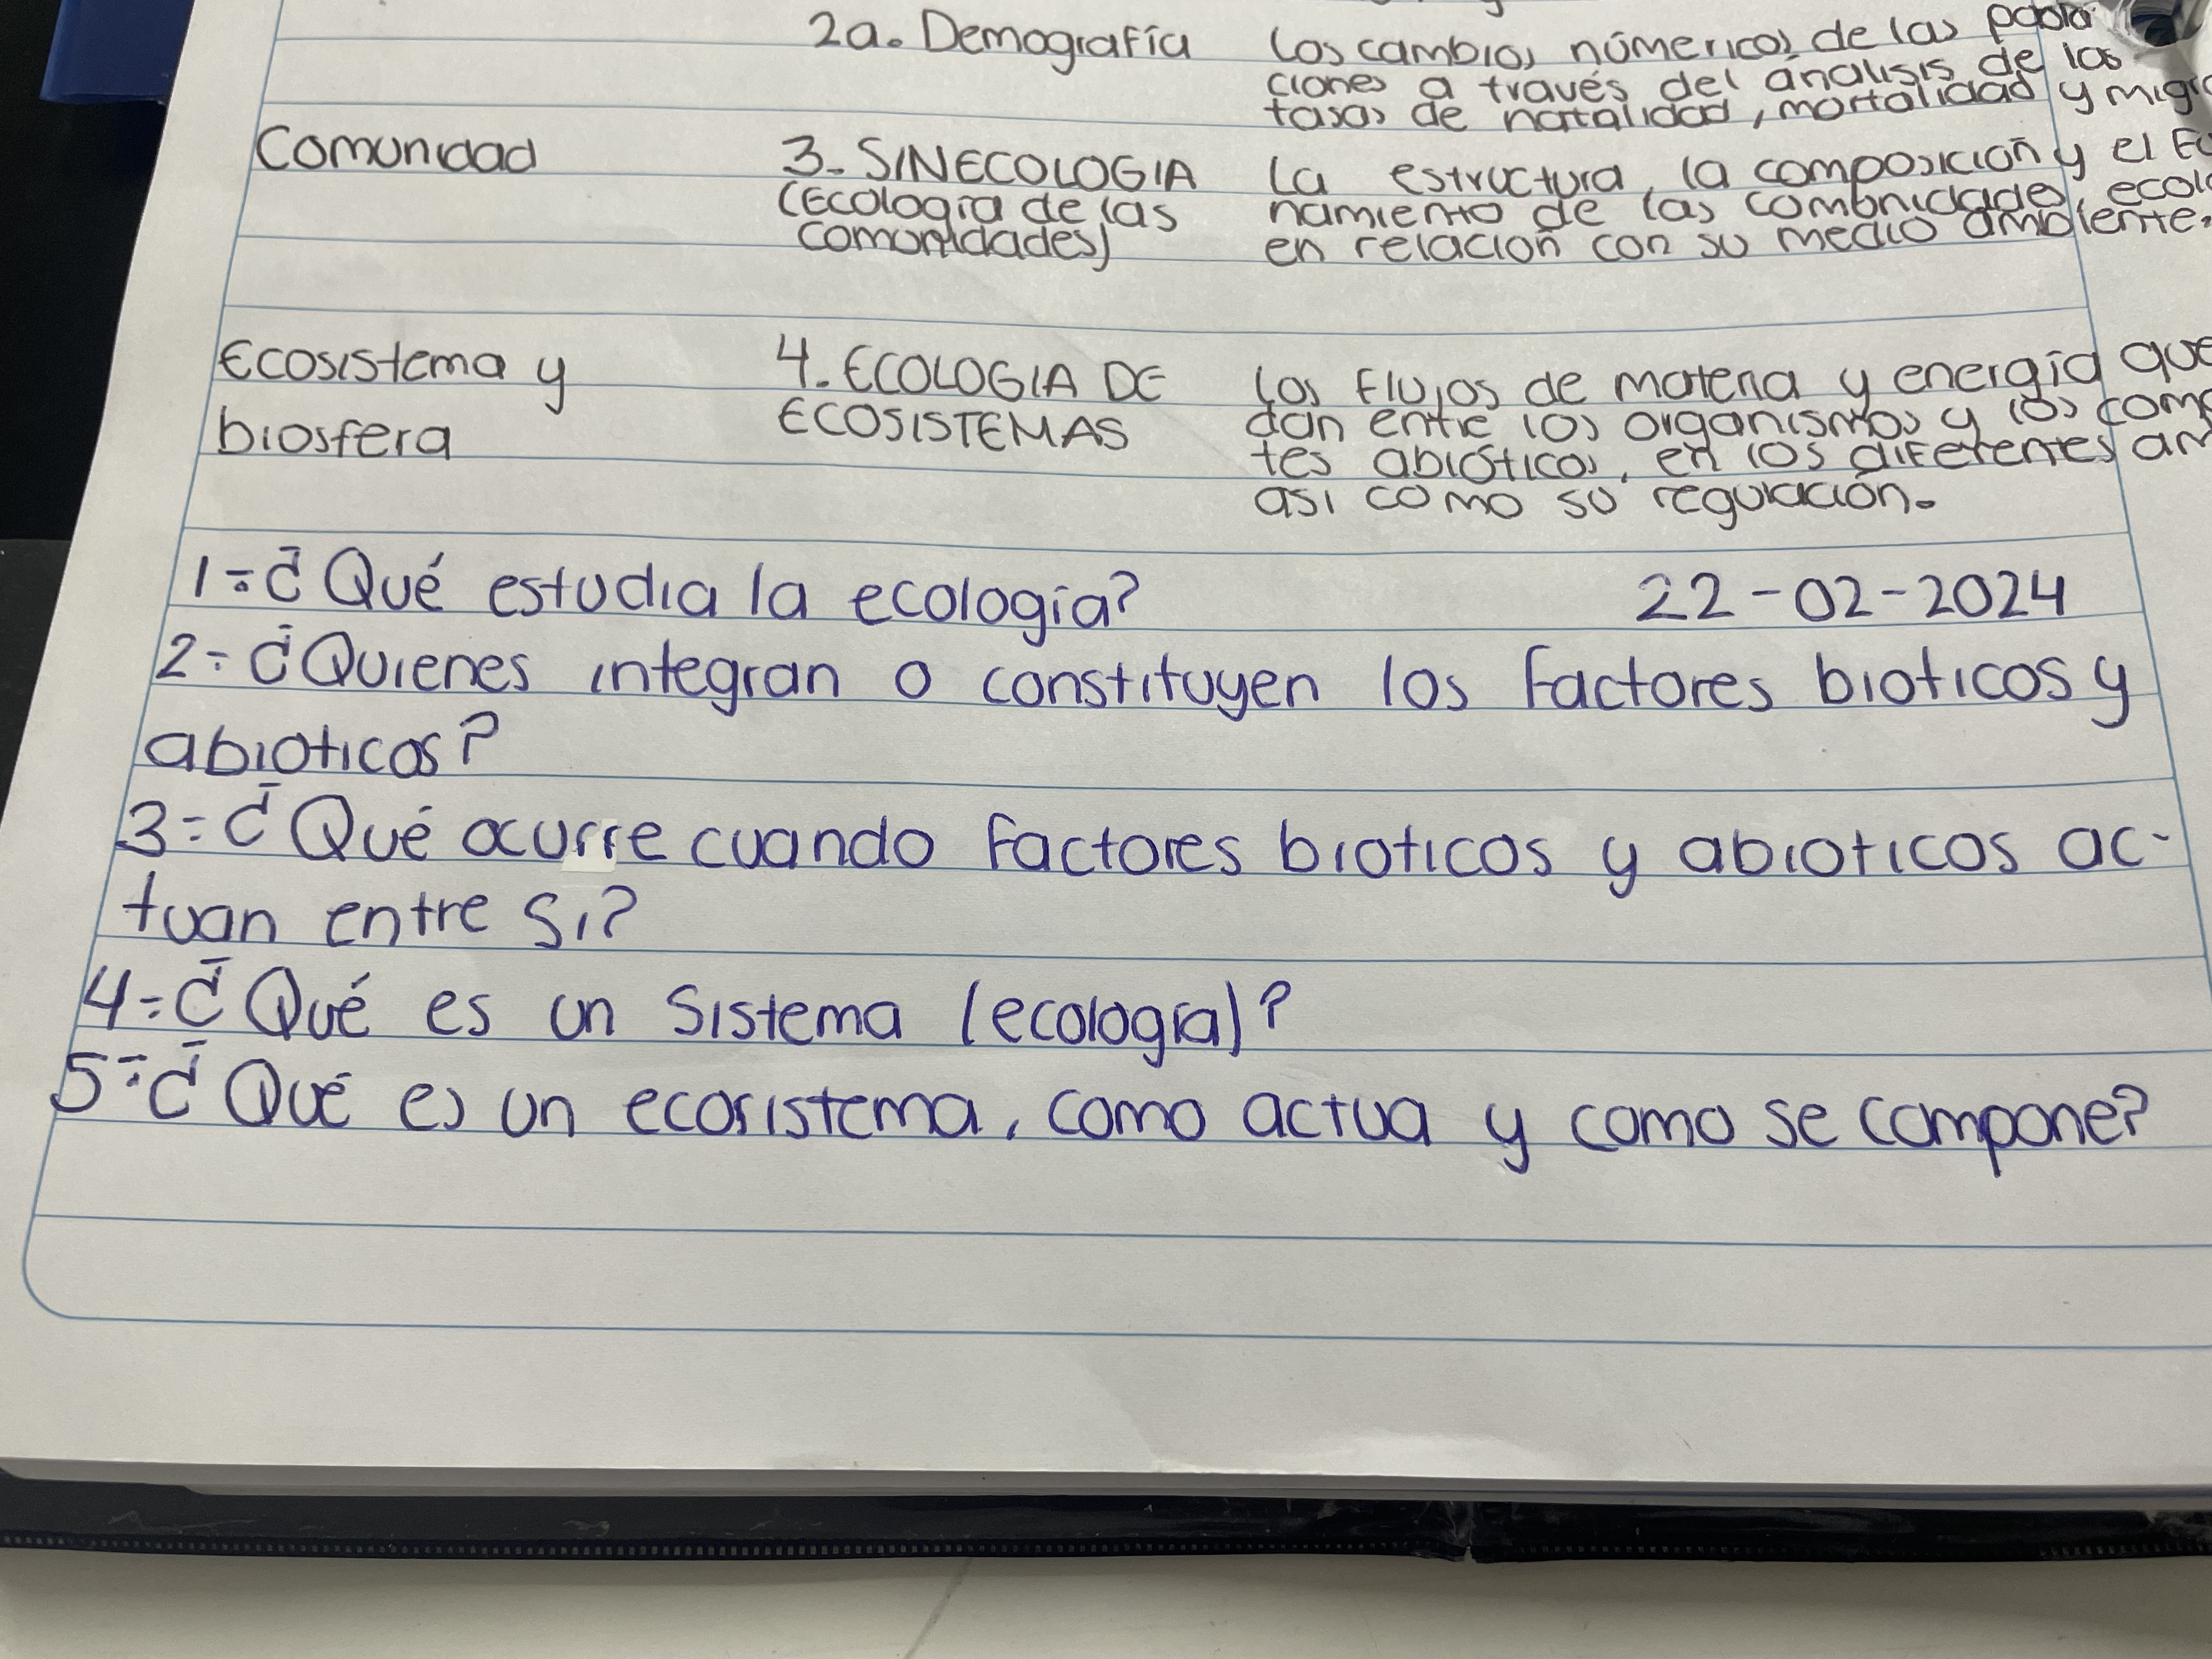 2a. Demografía Los cambios númericos de las pobla
ciones a través del análisis de las
tasas de natalidad, mortalidad y migra
Comunidad 3.- SINECOLOGIA La estructura, la composición y el Fu
(Ecología de las namiento de las comunidades ecoló
comunidades) en relación con su medio ambiente.
Ecosistema y 4. ECOLOGIA DE Los Flujos de materia y energía que
biosfera ECOSISTEMAS dan entre los organismos y los comp
tes abióticos, en los diferentes am
asi como su regulación.
1.- ¿Qué estudia la ecología? 22-02-2024
2.- ¿Quienes integran o constituyen los factores bioticos y
abioticos?
3.- ¿Qué ocurre cuando factores bioticos y abioticos ac-
tuan entre si?
4.- ¿Qué es un sistema (ecología)?
5.- ¿Qué es un ecosistema, como actua y como se compone?